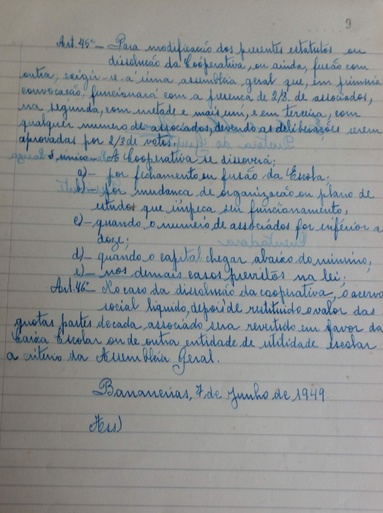 9
Art. 45º - Para modificação dos presentes estatutos ou
dissolução da Cooperativa, ou ainda, fusão com
outra, exigir-se-á uma assembléia geral que, em primeira
convocação, funcionará com a presença de 2/3 de associados,
na segunda, com metade e mais um, e em terceira, com
qualquer numero de associados, devendo as deliberações serem
aprovadas por 2/3 de votos.
§ único - A Cooperativa se dissolverá:
a) - por fechamento ou fusão da Escola;
b) - por mudança de organização ou plano de
estudos que impeça seu funcionamento,
c) - quando o numero de associados for inferior a
doze;
d) - quando o capital chegar abaixo do minimo;
e) - nos demais casos previstos na lei;
Art. 46º - No caso da dissolução da cooperativa, o acervo
social liquido, depois de restituido o valor das
quotas partes de cada associado será revertido em favor da
Caixa Escolar ou de outra entidade de utilidade escolar
a critério da Assembléia Geral.
Bananeiras, 7 de Junho de 1949